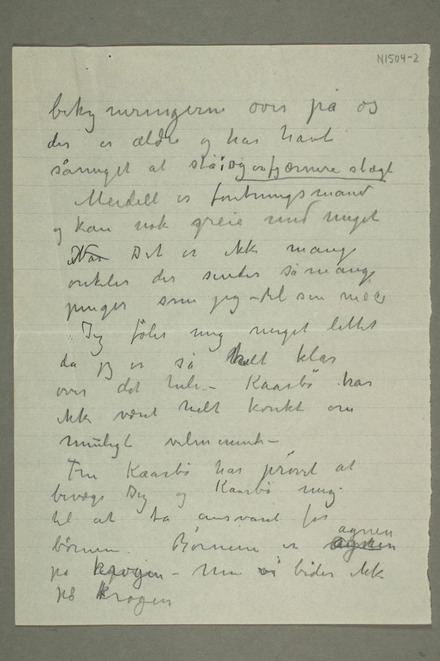 N1504-2
bekymringerne over på os
der er ældre og har havt
såmeget at stå i og en fjærnere slægt
Meidell er forretningsmand
og kan nok greie med meget
Det er ikke mange
onkeler der sender så mange
penger som jeg
Jeg føler mig meget lettet
da jeg er så helt klar
over det hele – Kaarbø har
ikke vært helt korekt om
muligt velmenende –
Fru Kaarbø har prøvet at
bevæge Dig og Kaarbø mig
til at ta ansvaret for
børnene. Børnene er agnen
på krogen – men vi bider ikke
på krogen